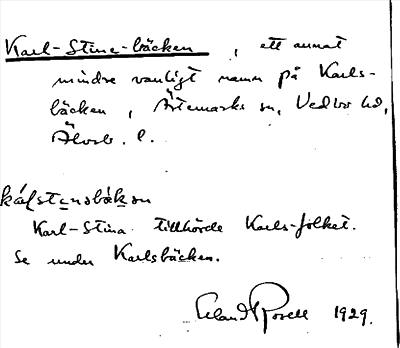 Karl-Stina-bäcken, ett annat
mindre vanligt namn på Karls-
bäcken, Ärtemarks sn, Vedbo hd,
Älvsb. l.
Karl-Stina tillhörde Karls-folket.
Se under Karlsbäcken.
Erland Rosell 1929.